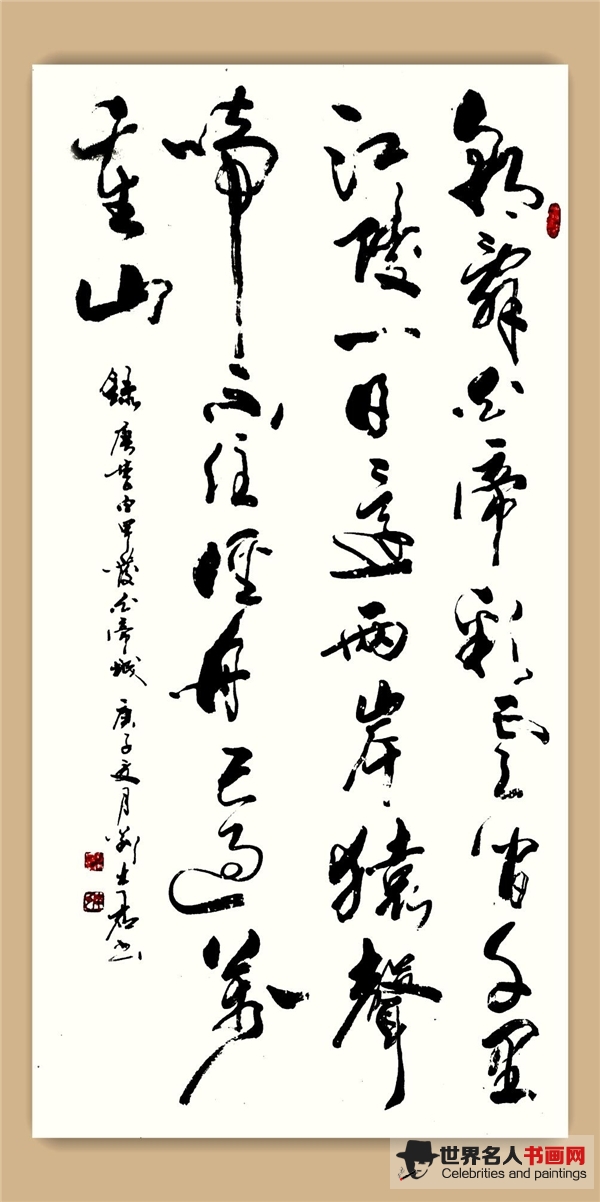 朝辞白帝彩云间千里
江陵一日还两岸猿聲
啼不住轻舟已过萬
重山
錄唐李白早發白帝城 庚子文月劉士君书
世界名人书画网
Celebrities and paintings